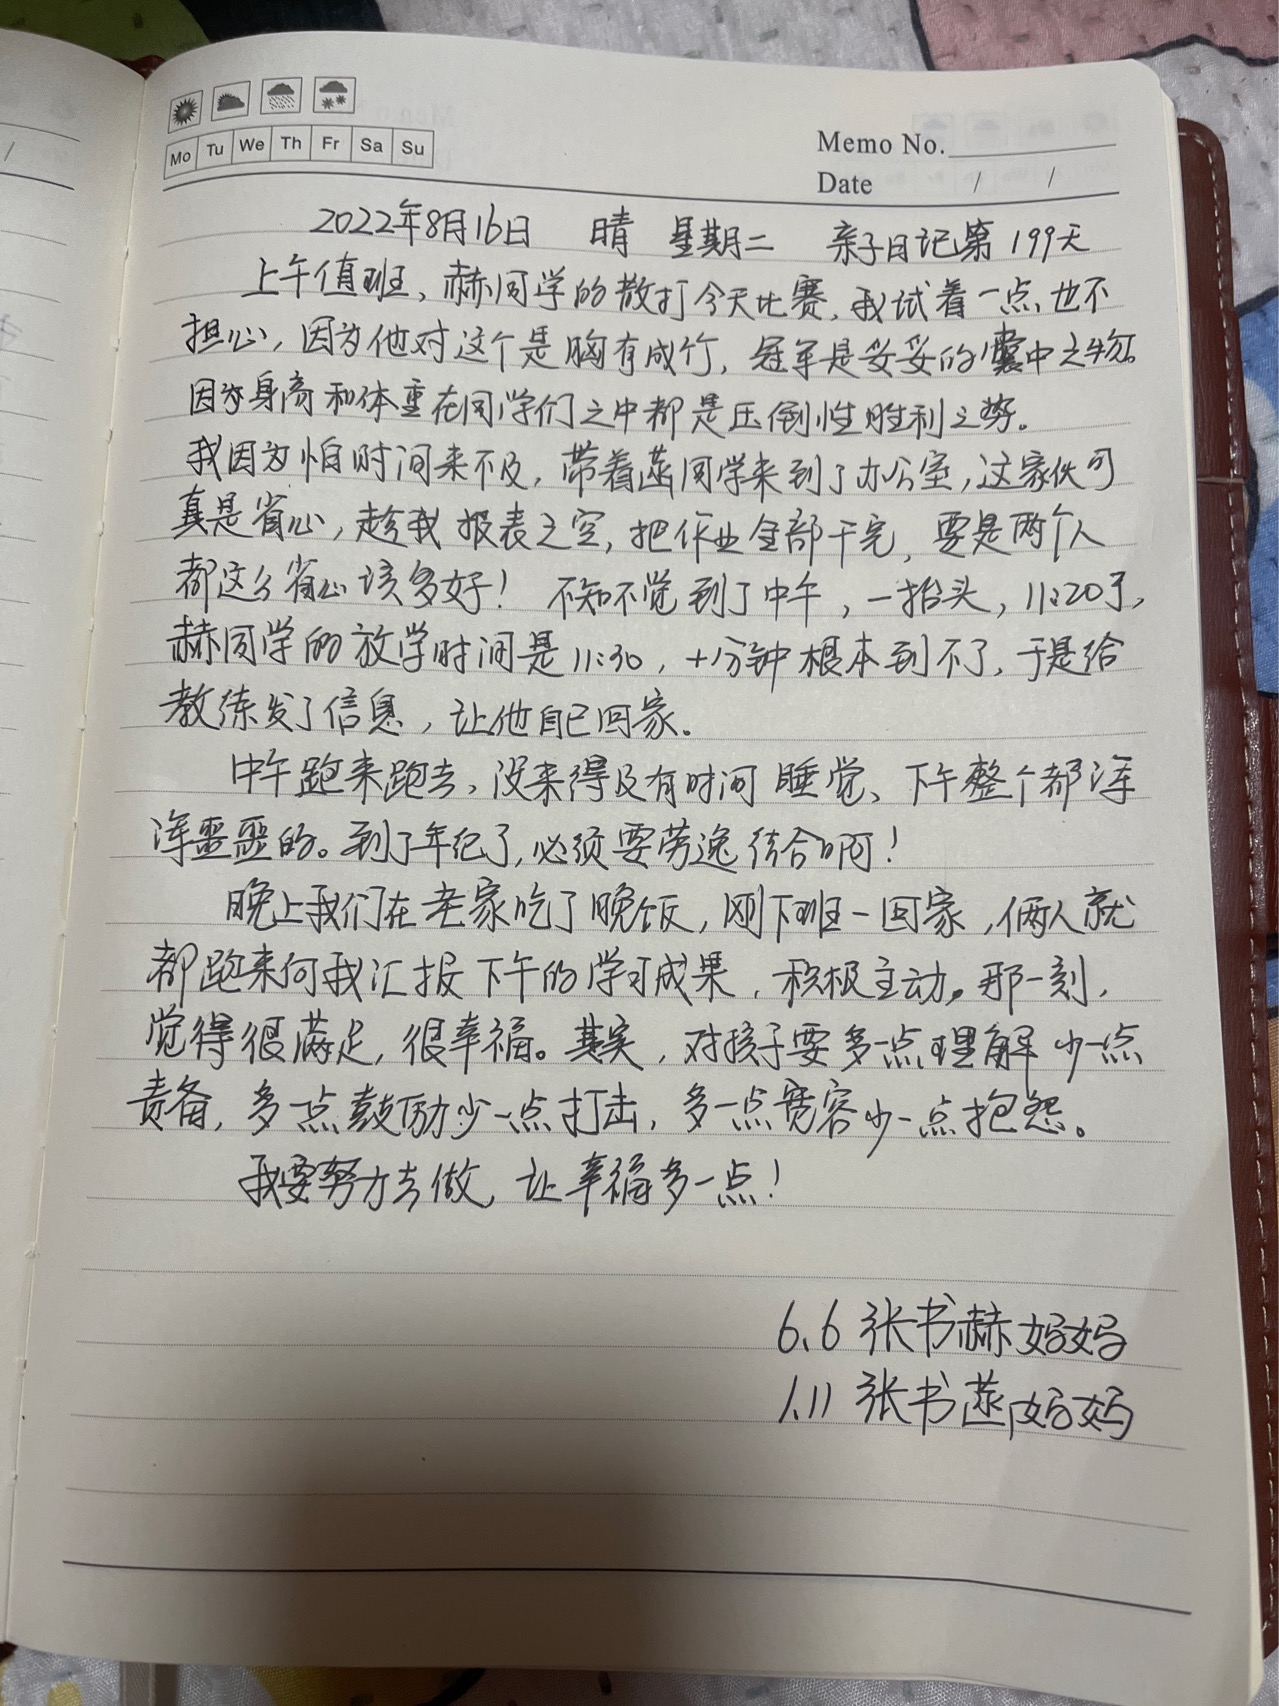 Mo Tu We Th Fr Sa Su
Memo No.
Date / /
2022年8月16日 晴 星期二 亲子日记第199天
上午值班、赫同学的散打今天比赛,我试着一点也不
担心,因为他对这个是胸有成竹,冠军是妥妥的囊中之物。
因为身高和体重在同学们之中都是压倒性胜利之势。
我因为怕时间来不及,带着菡同学来到了办公室,这家伙可
真是省心,趁我报表之空,把作业全部干完,要是两个人
都这么省心该多好!不知不觉到了中午,一抬头,11:20了,
赫同学的放学时间是11:30,十分钟根本到不了,于是给
教练发了信息,让他自己回家。
中午跑来跑去,没来得及有时间睡觉、下午整个都浑
浑噩噩的。到了年纪了,必须要劳逸结合啊!
晚上我们在老家吃了晚饭,刚下班一回家,俩人就
都跑来向我汇报下午的学习成果,积极主动。那一刻,
觉得很满足,很幸福。其实,对孩子要多一点理解少一点
责备,多一点鼓励少一点打击,多一点宽容少一点抱怨。
我要努力去做,让幸福多一点!
6.6 张书赫妈妈
1.11 张书菡妈妈